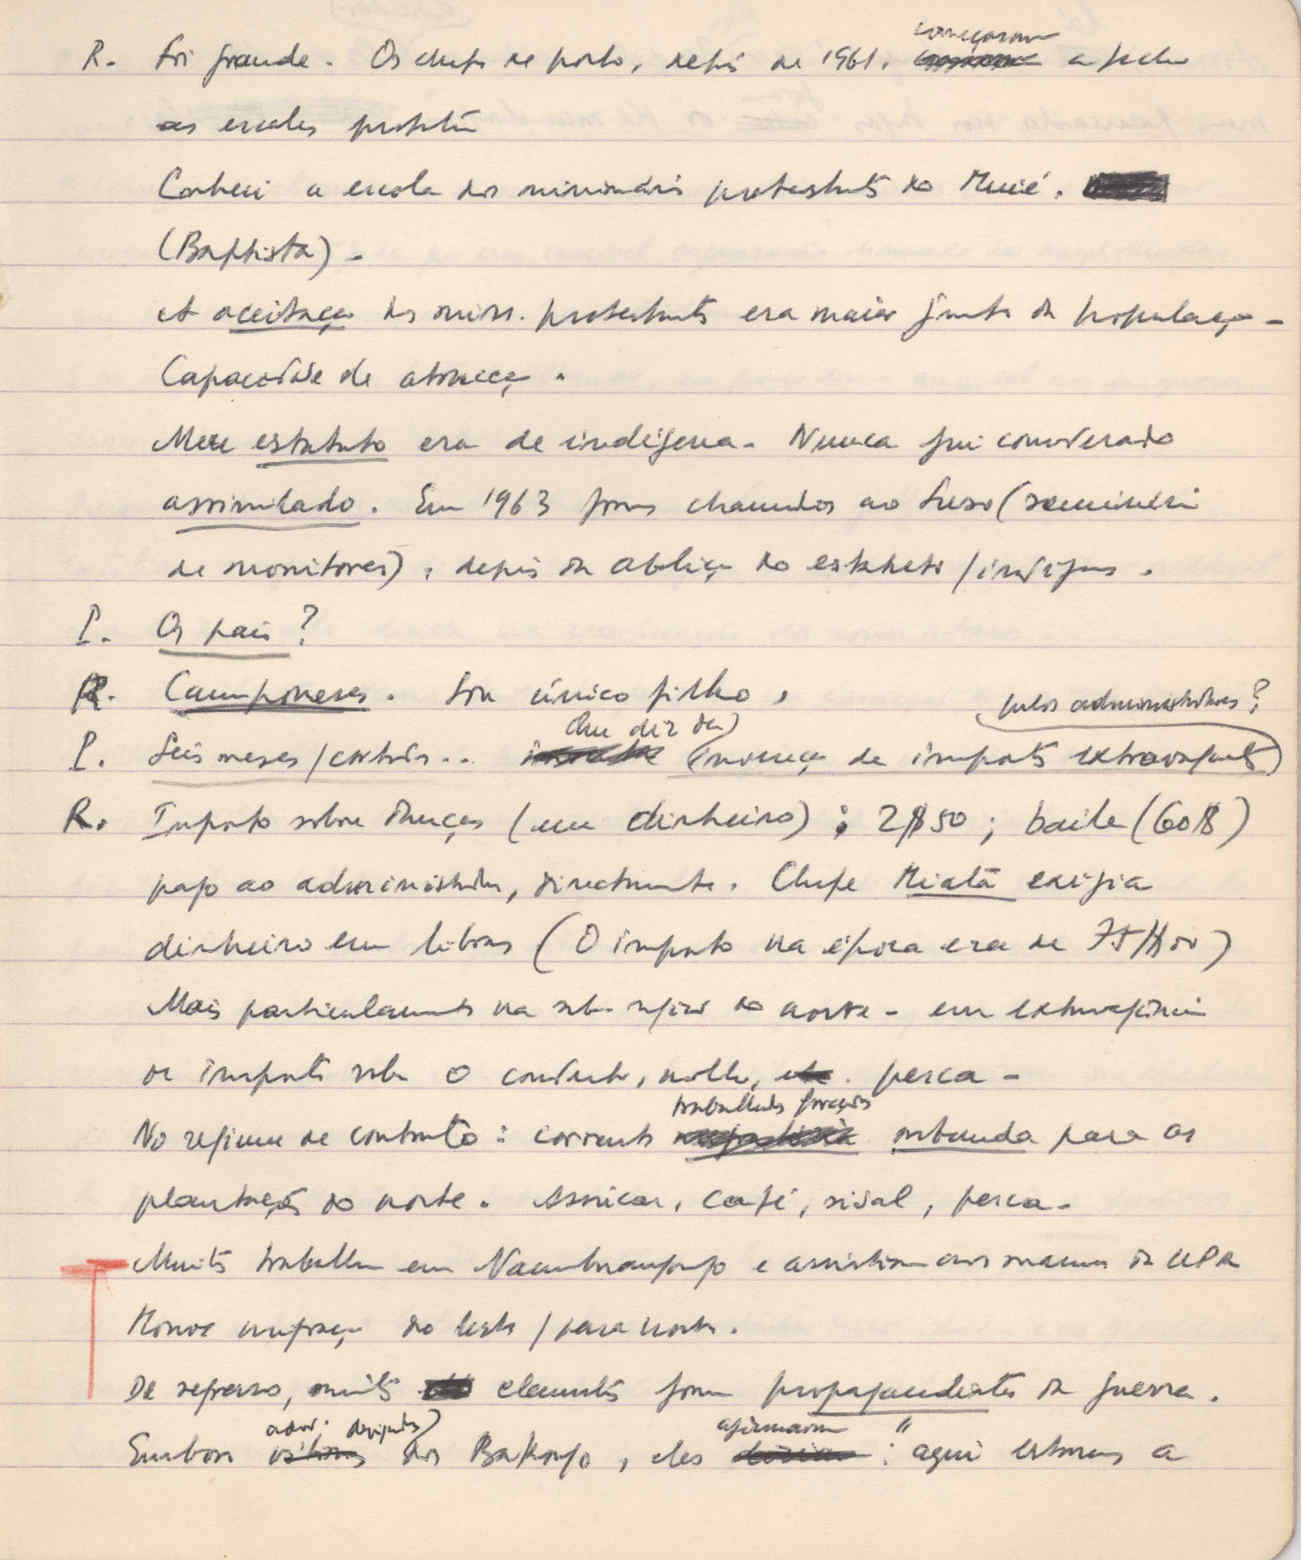 R. Foi grande. Os chefes de posto, depois de 1961, começaram a fechar
as escolas protestan
Conheci a escola dos missionários protestantes do Muié.
(Baptista) -
A aceitação dos miss. protestantes era maior junto da população -
Capacidade de atracção.
Meu estatuto era de indígena - Nunca fui considerado
assimilado. Em 1963 fomos chamados ao Luso (seminário
de monitores), depois da abolição do estatuto / indígena.
P. Os pais?
R. Camponeses. Sou único filho,
pelos administradores?
P. Seis meses / contrato.. Que diz da (inovação de impostos extravagantes)
R. Imposto sobre doenças (em dinheiro): 2$50; baile (60$)
pago ao administrador, directamente. Chefe Miatã exigia
dinheiro em libras (O imposto na época era de 75$00)
Mais particularmente na sub-região do norte - em extravagância
de impostos sobre o conduto, milho, etc. pesca -
No regime de contrato: corrente trabalhos forçados ombunda para as
plantações do norte. Assúcar, café, sisal, pesca -
Muitos trabalham em Nambuangongo e assistiram aos massacres da UPA
do leste / para norte.
De regresso, muitos elementos foram propagandistas da guerra.
Embora dos Bakongo, eles afirmavam: "aqui estamos a